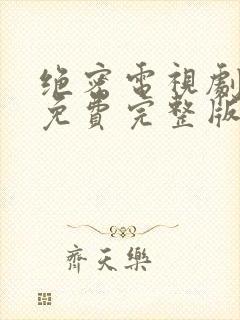 绝密電視劇
免費完整版
齊天樂